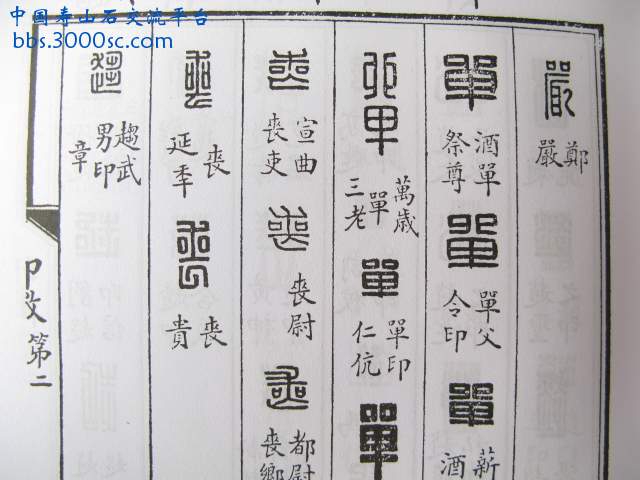 中国寿山石交流平台
bbs.3000sc.com
嚴
鄭嚴
單
酒單祭尊
單
單父令印
單
薪
酒
萬歲單三老
單
單印仁伉
單
喪
宣曲喪吏
喪
喪尉
喪
都尉
喪鄉
喪
喪延年
喪
喪貴
趨武男印章
印文第二